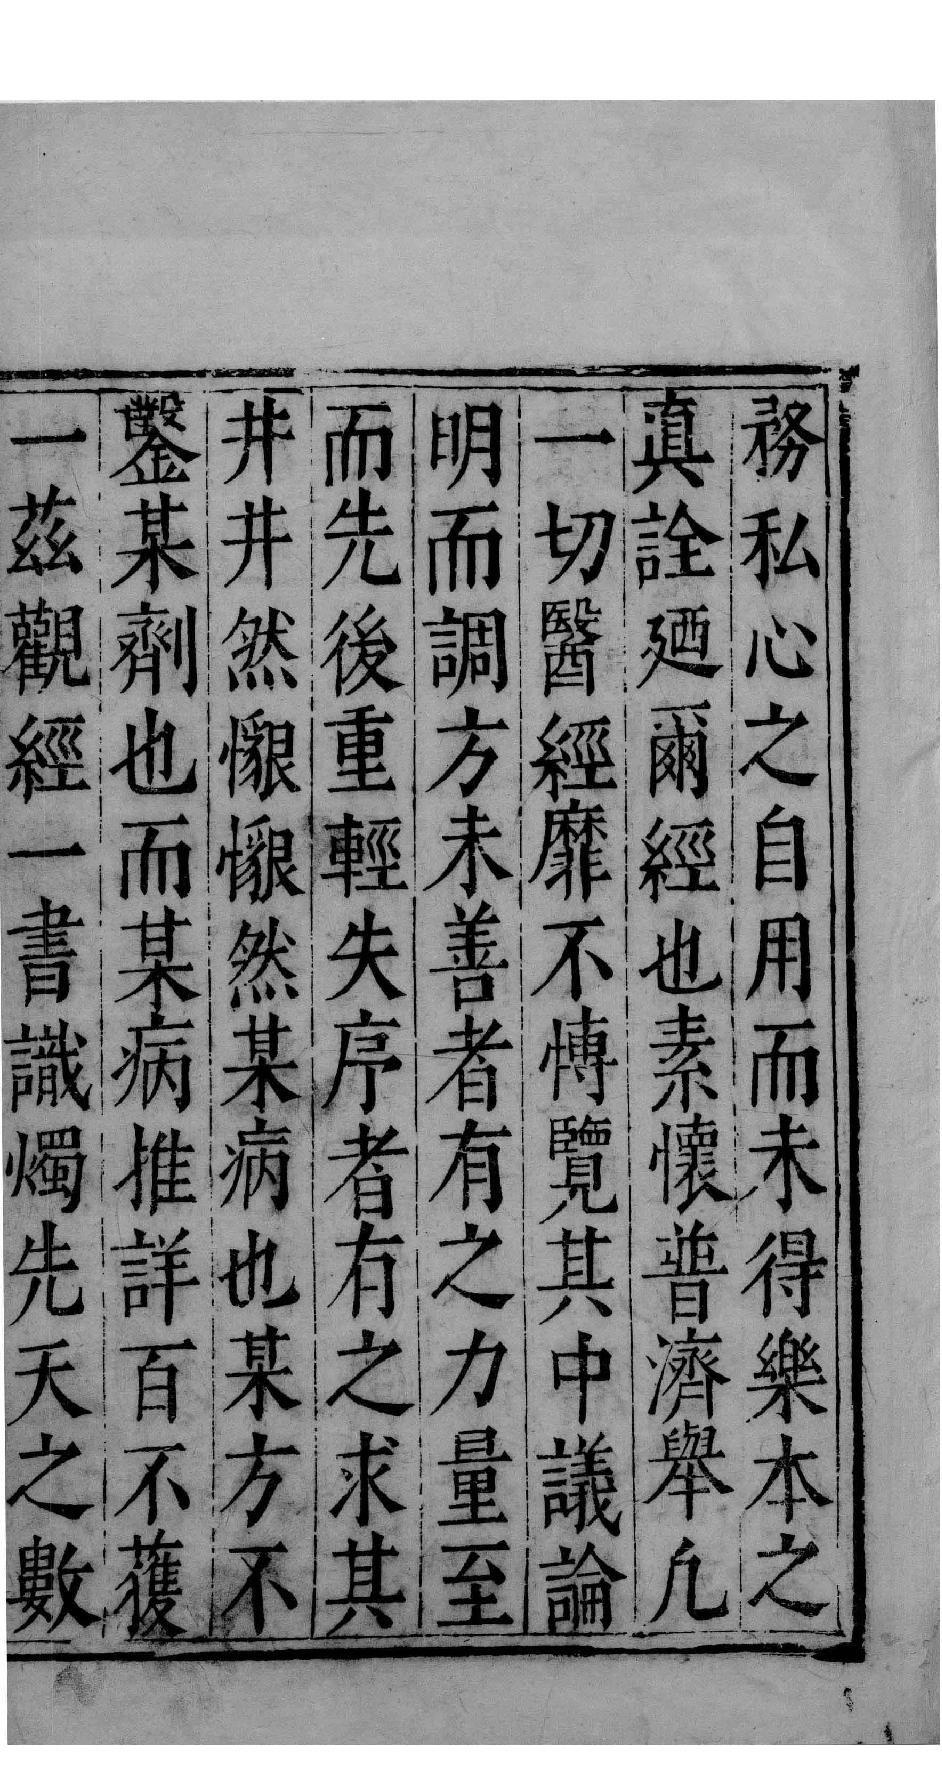 務私心之自用而未得樂本之
眞詮廼爾經也素懷普濟舉凢
一切醫經靡不慱覽其中議論
明而調方未善者有之力量至
而先後重輕失序者有之求其
井井然懇懇然某病也某方不
鑿某劑也而某病推詳百不獲
一茲觀經一書識燭先天之數